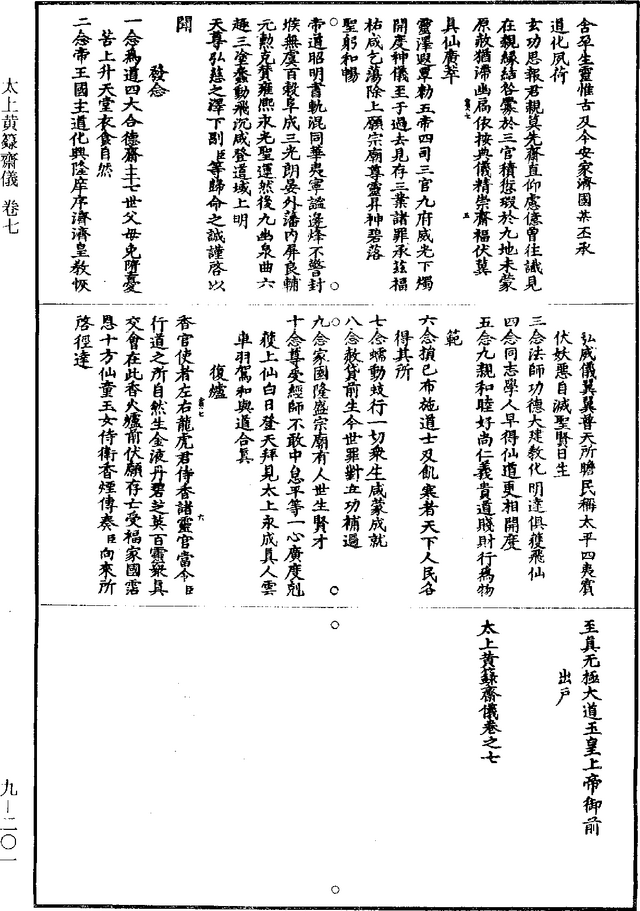 含孕生靈惟古及今安家濟國莫不丕承
道化夙荷
玄功思報君親莫先齋直仰慮億曾往識見
在親緣結咎釁於三官積愆瑕於九地未蒙
原赦猶滯幽局依按典儀精崇齋福伏冀
具仙廣宰
靈澤遐覃勅五帝四司三官九府威光下燭
開度神儀至于過去見存三業諸罪承茲福
祐咸乞蕩除上願宗廟尊靈昇神碧落
聖躬和暢
帝道昭明書軌混同華夷寧謐邊烽不警封
堠無虞百穀阜成三光朗晏外藩內屏良輔
元勳克贊雍熙永光聖運然後九幽泉曲六
趣三塗蠢動飛沉咸登道域上明
天尊弘慈之澤下副臣等歸命之誠謹啓以
聞
發念
一念為道四大合德齋主七世父母免離憂
苦上升天堂衣食自然
二念帝王國主道化興隆庠序濟濟皇教恢
弘威儀翼翼普天所瞻民稱太平四夷賓
伏妖惡自滅聖賢日生
三念法師功德大建教化明達俱獲飛仙
四念同志學人早得仙道更相開度
五念九親和睦好尚仁義貴道賤財行為物
範
六念損己布施道士及飢寒者天下人民各
得其所
七念蠕動蚑行一切眾生咸蒙成就
八念赦貸前生今世罪對立功補過
九念家國隆盛宗廟有人世生賢才
十念尊受經師不敢中怠平等一心廣度剋
獲上仙白日登天拜見太上永成真人雲
車羽駕和與道合真
復爐
香官使者左右龍虎君侍香諸靈官當令臣
行道之所自然生金液丹碧芝英百靈眾真
交會在此香火爐前伏願存亡受福家國霑
恩十方仙童玉女侍衛香煙傳奏臣向來所
啓徑達
至真无極大道玉皇上帝御前
出戶
太上黃籙齋儀卷之七
太上黃籙齋儀 卷七
九–二〇一